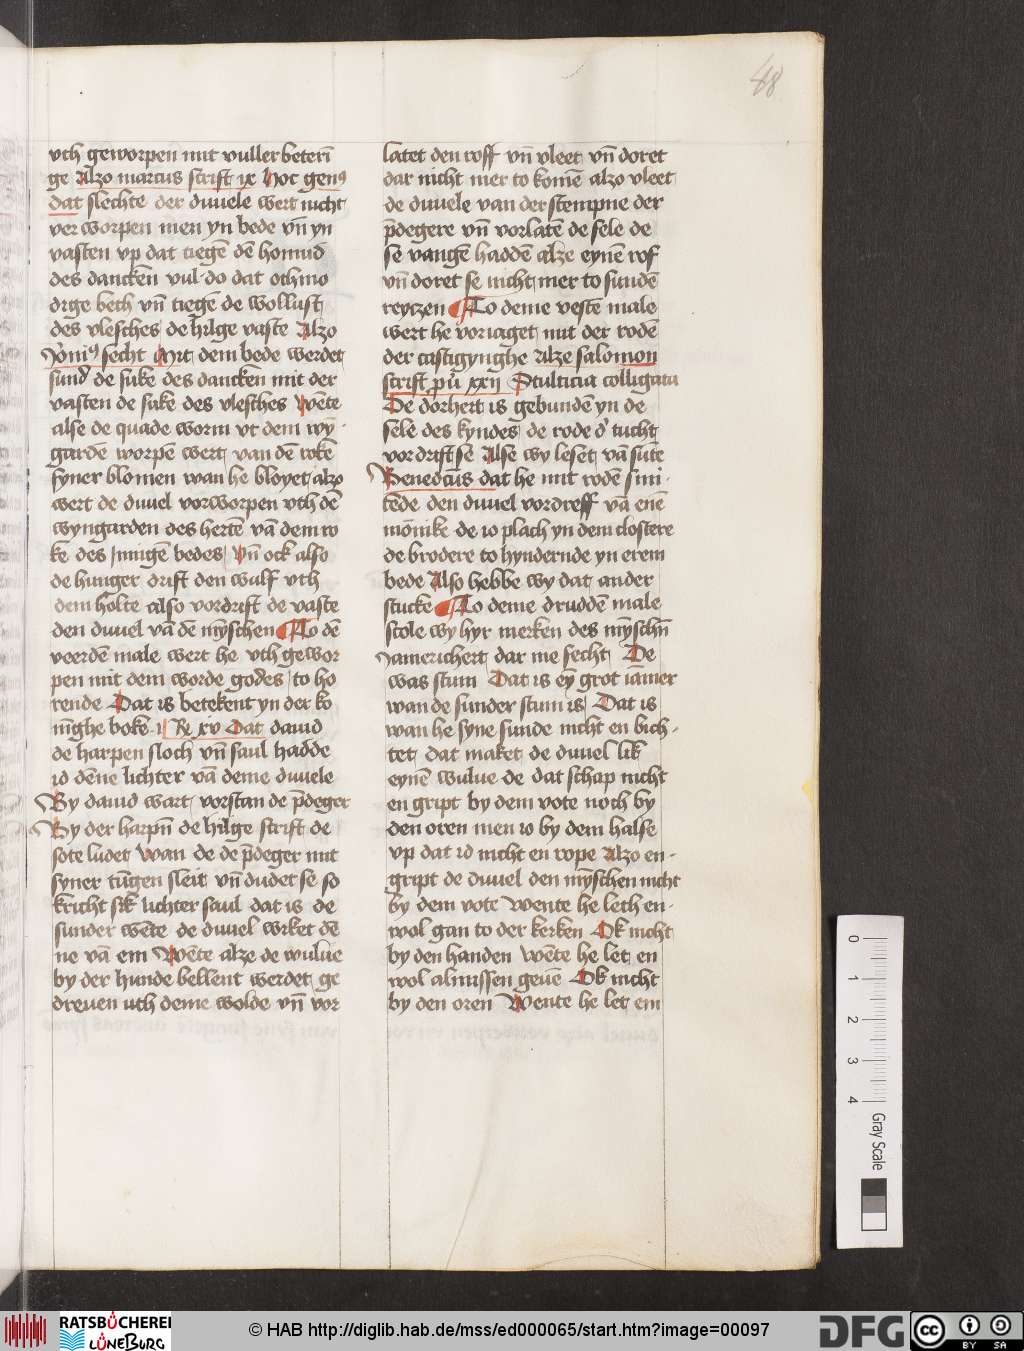 48
vth geworpen mit vuller beterī
ge Alzo marcus scrift ix Hoc genꝰ
dat slechte der duuele wert nicht
ver worpen men yn bede vn̄ yn
vasten vp dat tiegē dē homud
des dancken vul do dat othmo
dige beth vn̄ tiegē de wollust
des vlesches de hilge vaste Alzo
secht Mit dem bede werdet
sund de suke des dancken mit der
vasten de suke des vlesches Wēte
alse de quade worm vt dem wȳ
gardē worpē wert van dē roke
syner blomen wan he bloyet alzo
wert de duuel vorworpen vth dē
wyngarden des hertē vā dem ro
kē des jnnigē bedes Vn̄ ock also
de hunger drift den wulf vth
dem holte also vordrift de vaste
den duuel vā dē mȳschen To dē
veerdē male wert he vth gewor
pen mit dem worde godes to ho
rende Dat is betekent yn der ko
nīghe boke i Rē xv Dat dauid
de harpen sloch vn̄ saul hadde
id dēne lichter vā deme duuele
By dauid wart vorstan de p̄deger
By der harpn̄ de hilge scrift de
sote ludet wan de de p̄deger mit
syner tūgen sleit vn̄ dudet se so
kricht sik lichter saul dat is de
sunder wēte de duuel wiket dē
ne vā em Wēte alze de wulue
by der hunde bellent werdet ge
dreuen uth deme wolde vn̄ vor
latet den roff vn̄ vleet vn̄ doret
dar nicht mer to komē alzo vleet
de duuele van der stempne der
p̄degere vn̄ vorlatē de sele de
se vangē haddē alze eynē rof
vn̄ doret se nicht mer to sundē
reyzen To deme veste male
wert he voriaget mit der rodē
der castigynghe Alze salomon
scrift xxii Stulticia colligata
De dorhert is gebundē yn de
sele des kyndes de rode d' tucht
vordrift se Alse wy leset vā sūte
Benedictus dat he mit rodē smi
tēde den duuel vordreff vā enē
mōnike de io plach yn dem clostere
de brodere to hyndernde yn erem
bede Also hebbe wy dat ander
stucke To deme druddē male
scole wy hyr merken des mȳschn̄
iamericheit dar me secht De
was stum Dat is eȳ grot iām̄er
wan de sunder stum is Dat is
wan he syne sunde nicht en bich
tet dat maket de duuel lik
eynē wulue de dat schap nicht
en gript by dem vote noch by
den oren men io by dem halse
vp dat id nicht en rope Alzo en
gript de duuel den mȳschen nicht
by dem vote Wente he leth en
wol gan to der kerken Ok nicht
by den handen Wēte he let en
wol almissen geuē Ok nicht
by den oren Wente he let em
0 1 2 3 4 Gray Scale
RATSBÜCHEREI LÜNEBURG
© HAB http://diglib.hab.de/mss/ed000065/start.htm?image=00097
DFG
cc BY SA